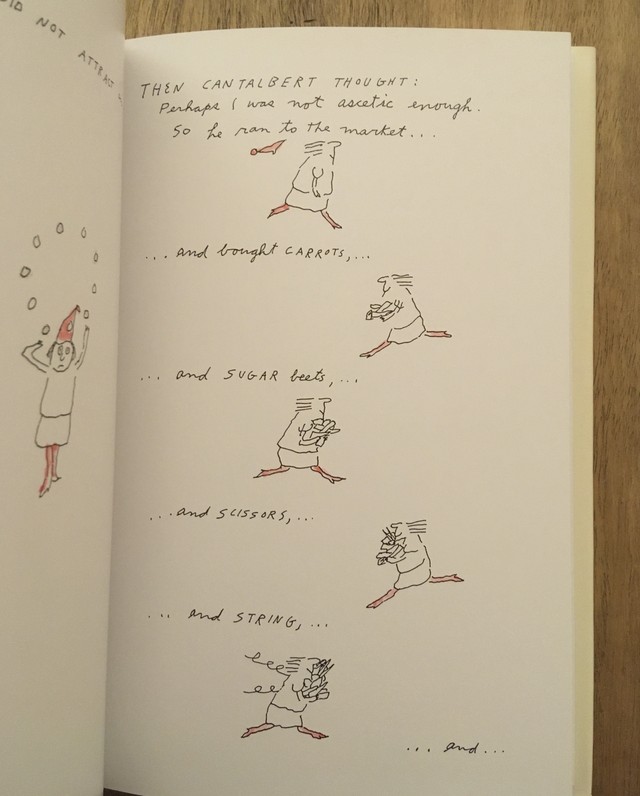 DID NOT ATTRACT
THEN CANTALBERT THOUGHT:
Perhaps I was not ascetic enough.
So he ran to the market...
...and bought CARROTS,...
... and SUGAR beets,...
...and SCISSORS,...
... and STRING, ...
... and...